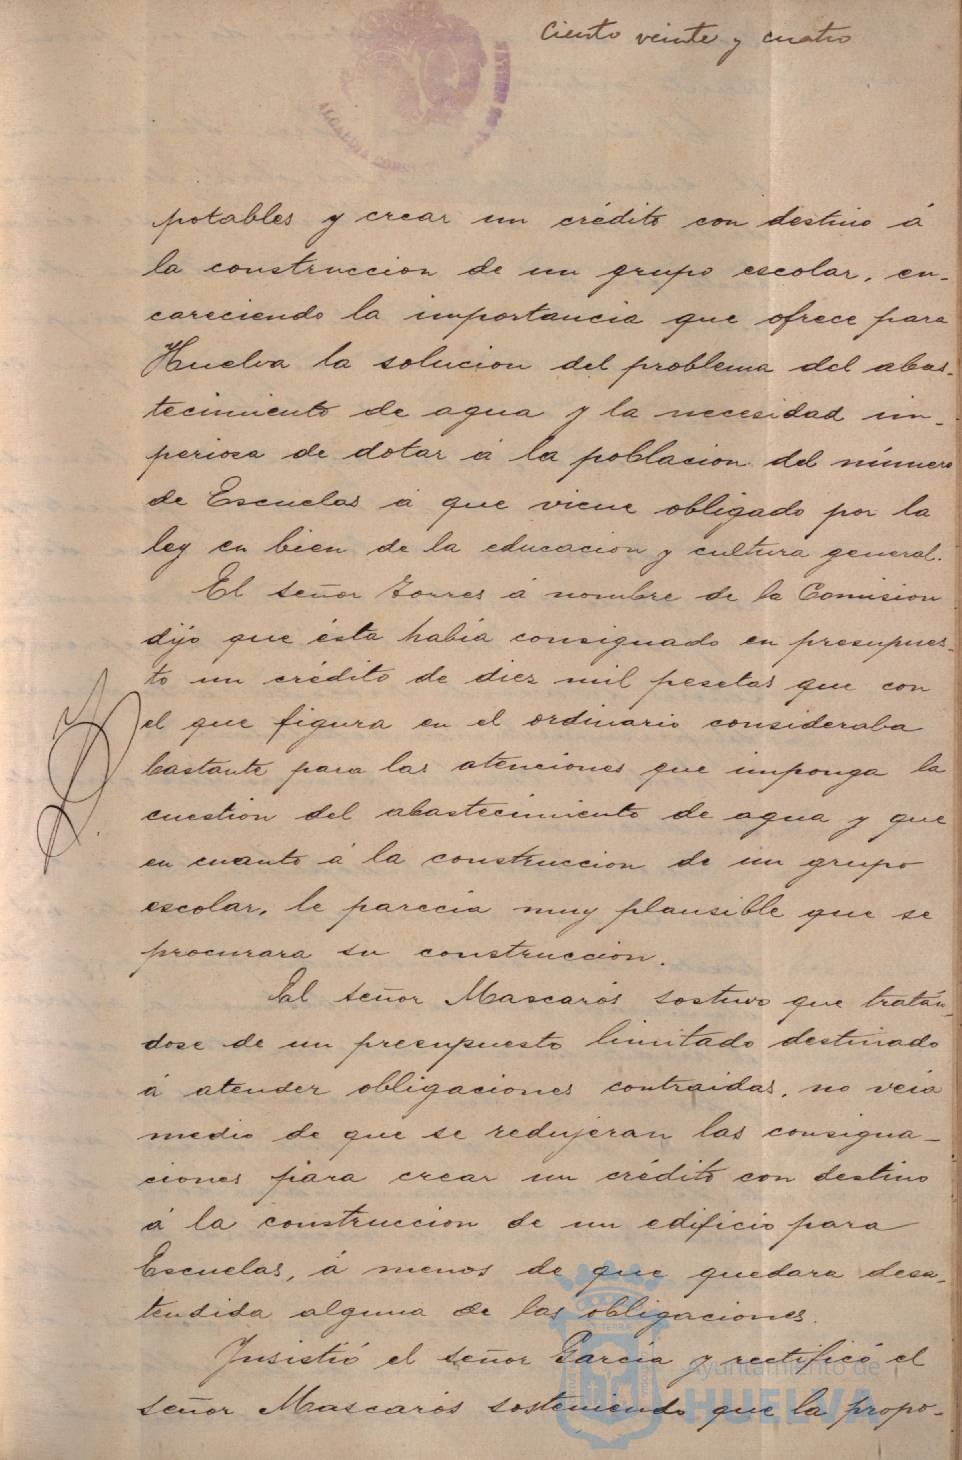 Ciento veinte y cuatro
potables y crear un crédito con destino á
la construccion de un grupo escolar, en-
careciendo la importancia que ofrece para
Huelva la solucion del problema del abas-
tecimiento de agua y la necesidad im-
periosa de dotar á la poblacion del número
de Escuelas á que viene obligado por la
ley en bien de la educacion y cultura general.
El señor Torres á nombre de la Comision
dijo que ésta había consignado en presupues-
to un crédito de diez mil pesetas que con
el que figura en el ordinario consideraba
bastante para las atenciones que imponga la
cuestion del abastecimiento de agua y que
en cuanto á la construccion de un grupo
escolar, le parecia muy plausible que se
procurara su construccion.
El señor Mascarós sostuvo que tratán-
dose de un presupuesto limitado destinado
á atender obligaciones contraidas, no veia
medio de que se redujeran las consigna-
ciones para crear un crédito con destino
á la construccion de un edificio para
Escuelas, á menos de que quedara desa-
tendida alguna de las obligaciones.
Insistió el señor García y rectificó el
señor Mascarós sosteniendo que la propo-
Ayuntamiento de
HUELVA